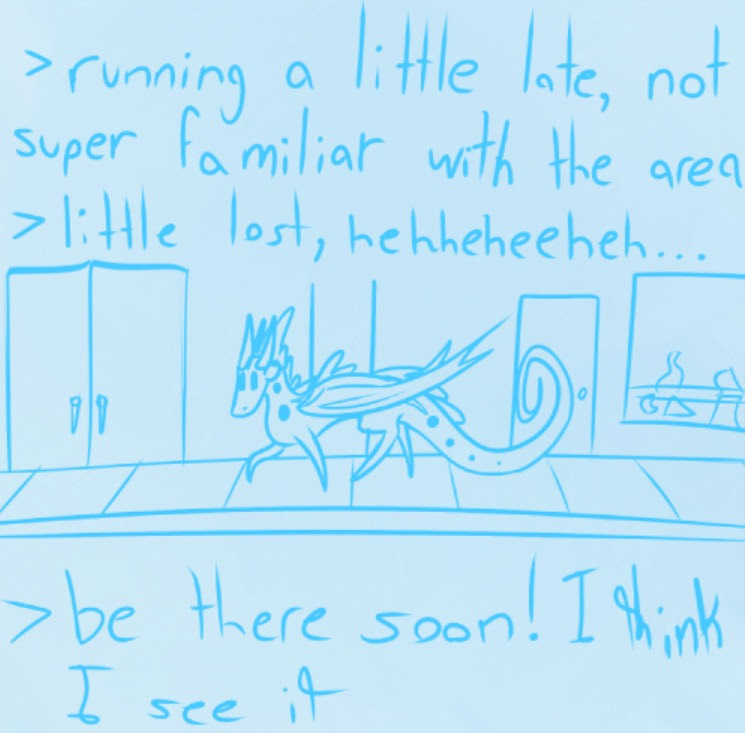 >running a little late, not
super familiar with the area
>little lost, hehheheeheh...
>be there soon! I think
I see it